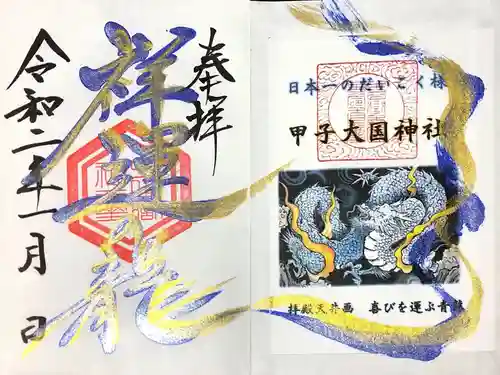 奉拝
祥運龍
令和二年一月 日
日本一のだいこく様
甲子大国神社
拝殿天井画 喜びを運ぶ青龍